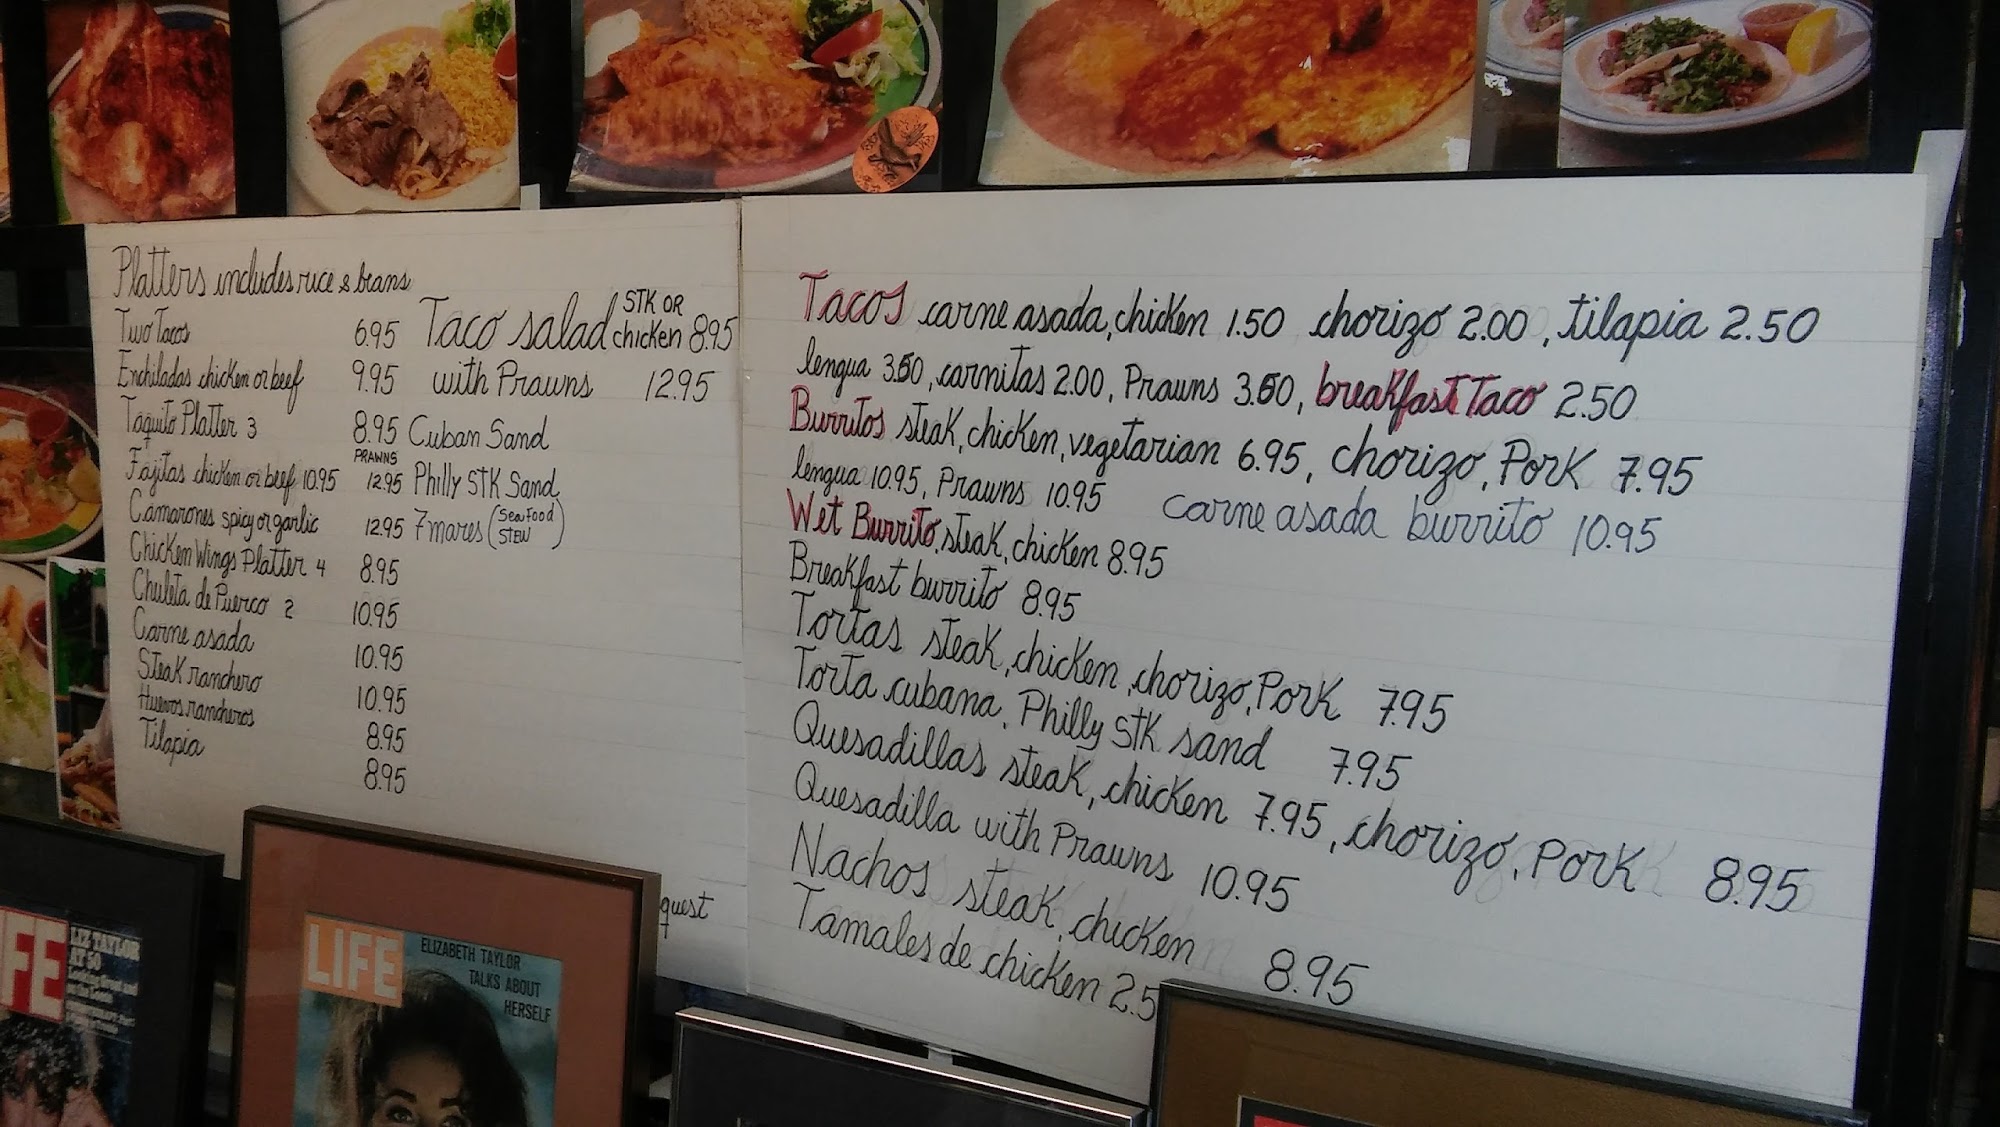 Platters includes rice & beans
Two Tacos 6.95
Enchiladas chicken or beef 9.95
Taquito Platter 3 8.95
PRAWNS
Fajitas chicken or beef 10.95 12.95
Camarones spicy or garlic 12.95
Chicken Wings Platter 4 8.95
Chuleta de Puerco 2 10.95
Carne asada 10.95
Steak ranchero 10.95
Huevos rancheros 8.95
Tilapia 8.95
Taco salad STK OR chicken 8.95
with Prawns 12.95
Cuban Sand
Philly STK Sand
7 mares (Sea Food STEW)
quest
Tacos carne asada, chicken 1.50 chorizo 2.00, tilapia 2.50
lengua 3.50, carnitas 2.00, Prawns 3.50, breakfast Taco 2.50
Burritos steak, chicken, vegetarian 6.95, chorizo, Pork 7.95
lengua 10.95, Prawns 10.95 carne asada burrito 10.95
Wet Burrito, steak, chicken 8.95
Breakfast burrito 8.95
Tortas steak, chicken, chorizo, Pork 7.95
Torta cubana, Philly STK sand 7.95
Quesadillas steak, chicken 7.95, chorizo, Pork 8.95
Quesadilla with Prawns 10.95
Nachos steak, chicken 8.95
Tamales de chicken 2.5
FE
LIZ TAYLOR
AT 50
LIFE
ELIZABETH TAYLOR
TALKS ABOUT
HERSELF